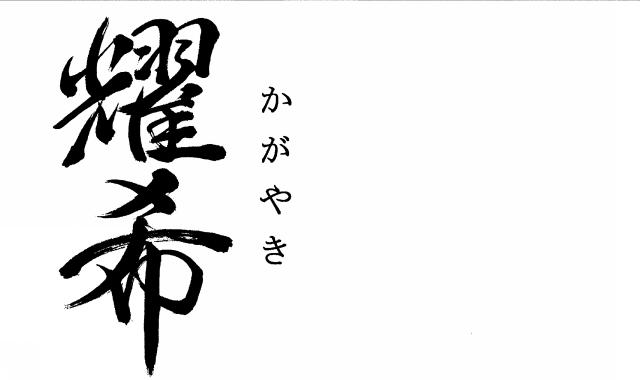 耀希
かがやき